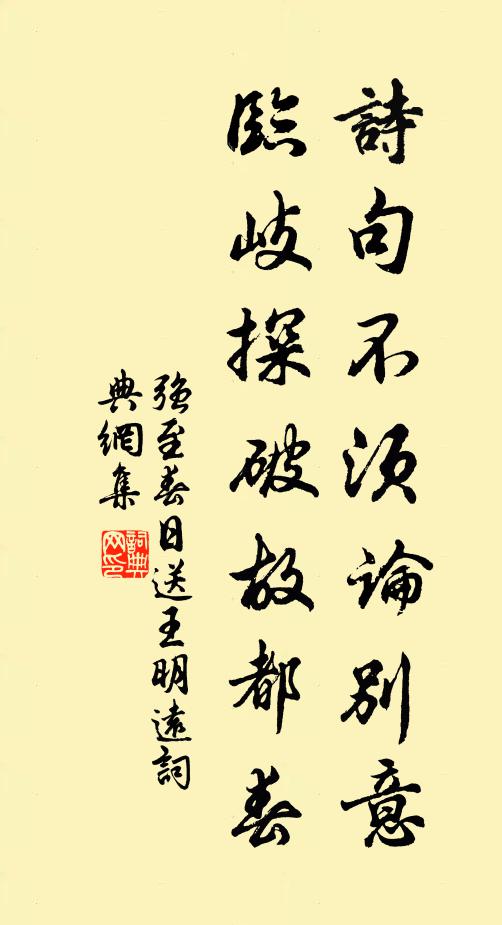 詩句不須論別意
臨岐探破故都春
強至春日送王明遠詞
典網集
詞典
网印